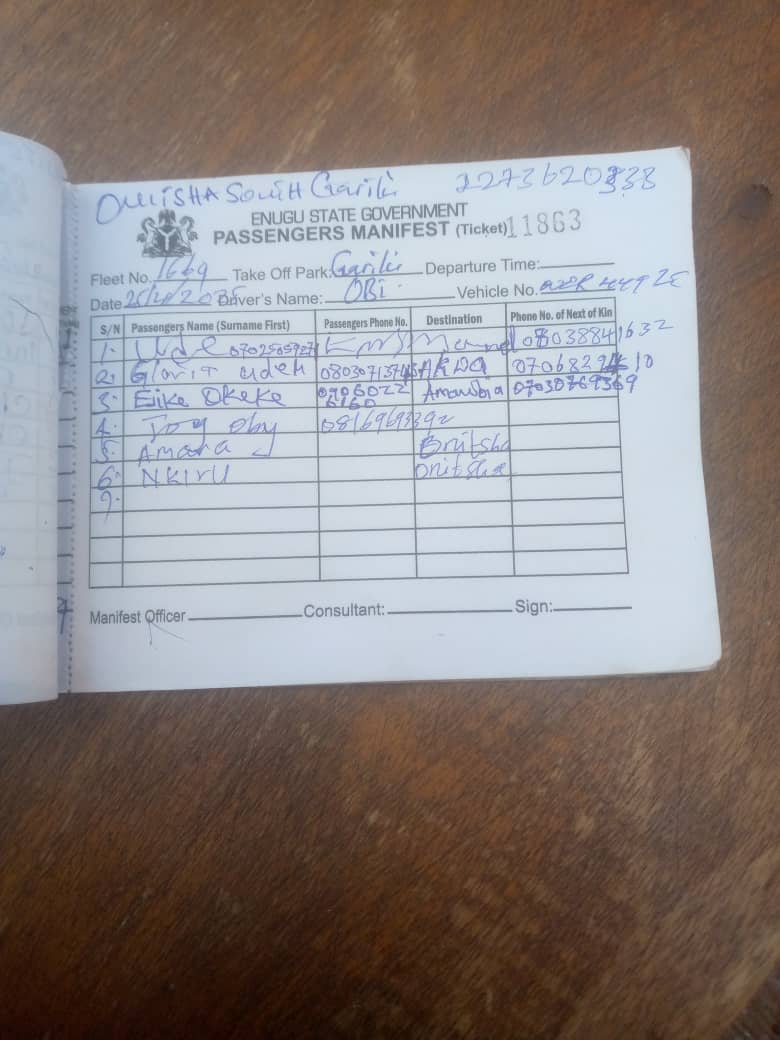 ONITSHA South Gariki 2273620338
ENUGU STATE GOVERNMENT
PASSENGERS MANIFEST (Ticket) 11863
Fleet No. 1669 Take Off Park: Gariki Departure Time:
Date 25/4/2025 Driver's Name: OBI Vehicle No.
S/N Passengers Name (Surname First) Passengers Phone No. Destination Phone No. of Next of Kin
1. Ude
2. Gloria udeh ARDO
3. Ejike Okeke 0706022 6160 Amawbia 07030769369
4. Joy oby 08169693392
5. Amara Onitsha
6. NKIRU Onitsha
7.
Manifest Officer Consultant: Sign: